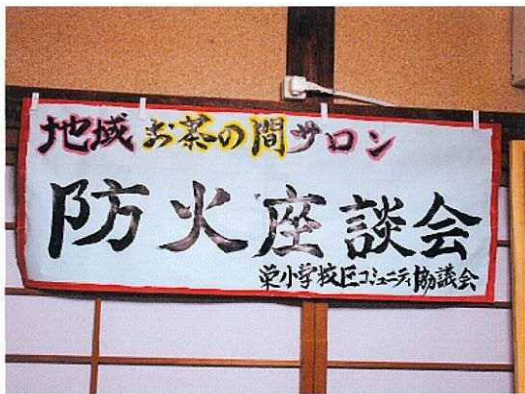 地域お茶の間サロン
防火座談会
栄小学校区コミュニティ協議会